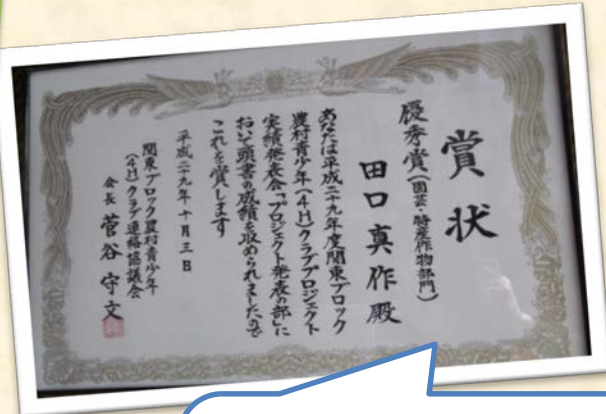 賞状
優秀賞(園芸・特産作物部門)
田口真作殿
あなたは平成二十九年度関東ブロック
農村青少年(4H)クラブプロジェクト
実績発表会「プロジェクト発表の部」に
おいて頭書の成績を収められましたので
これを賞します
平成二十九年十月三日
関東ブロック農村青少年
(4H)クラブ連絡協議会
会長 菅谷守文